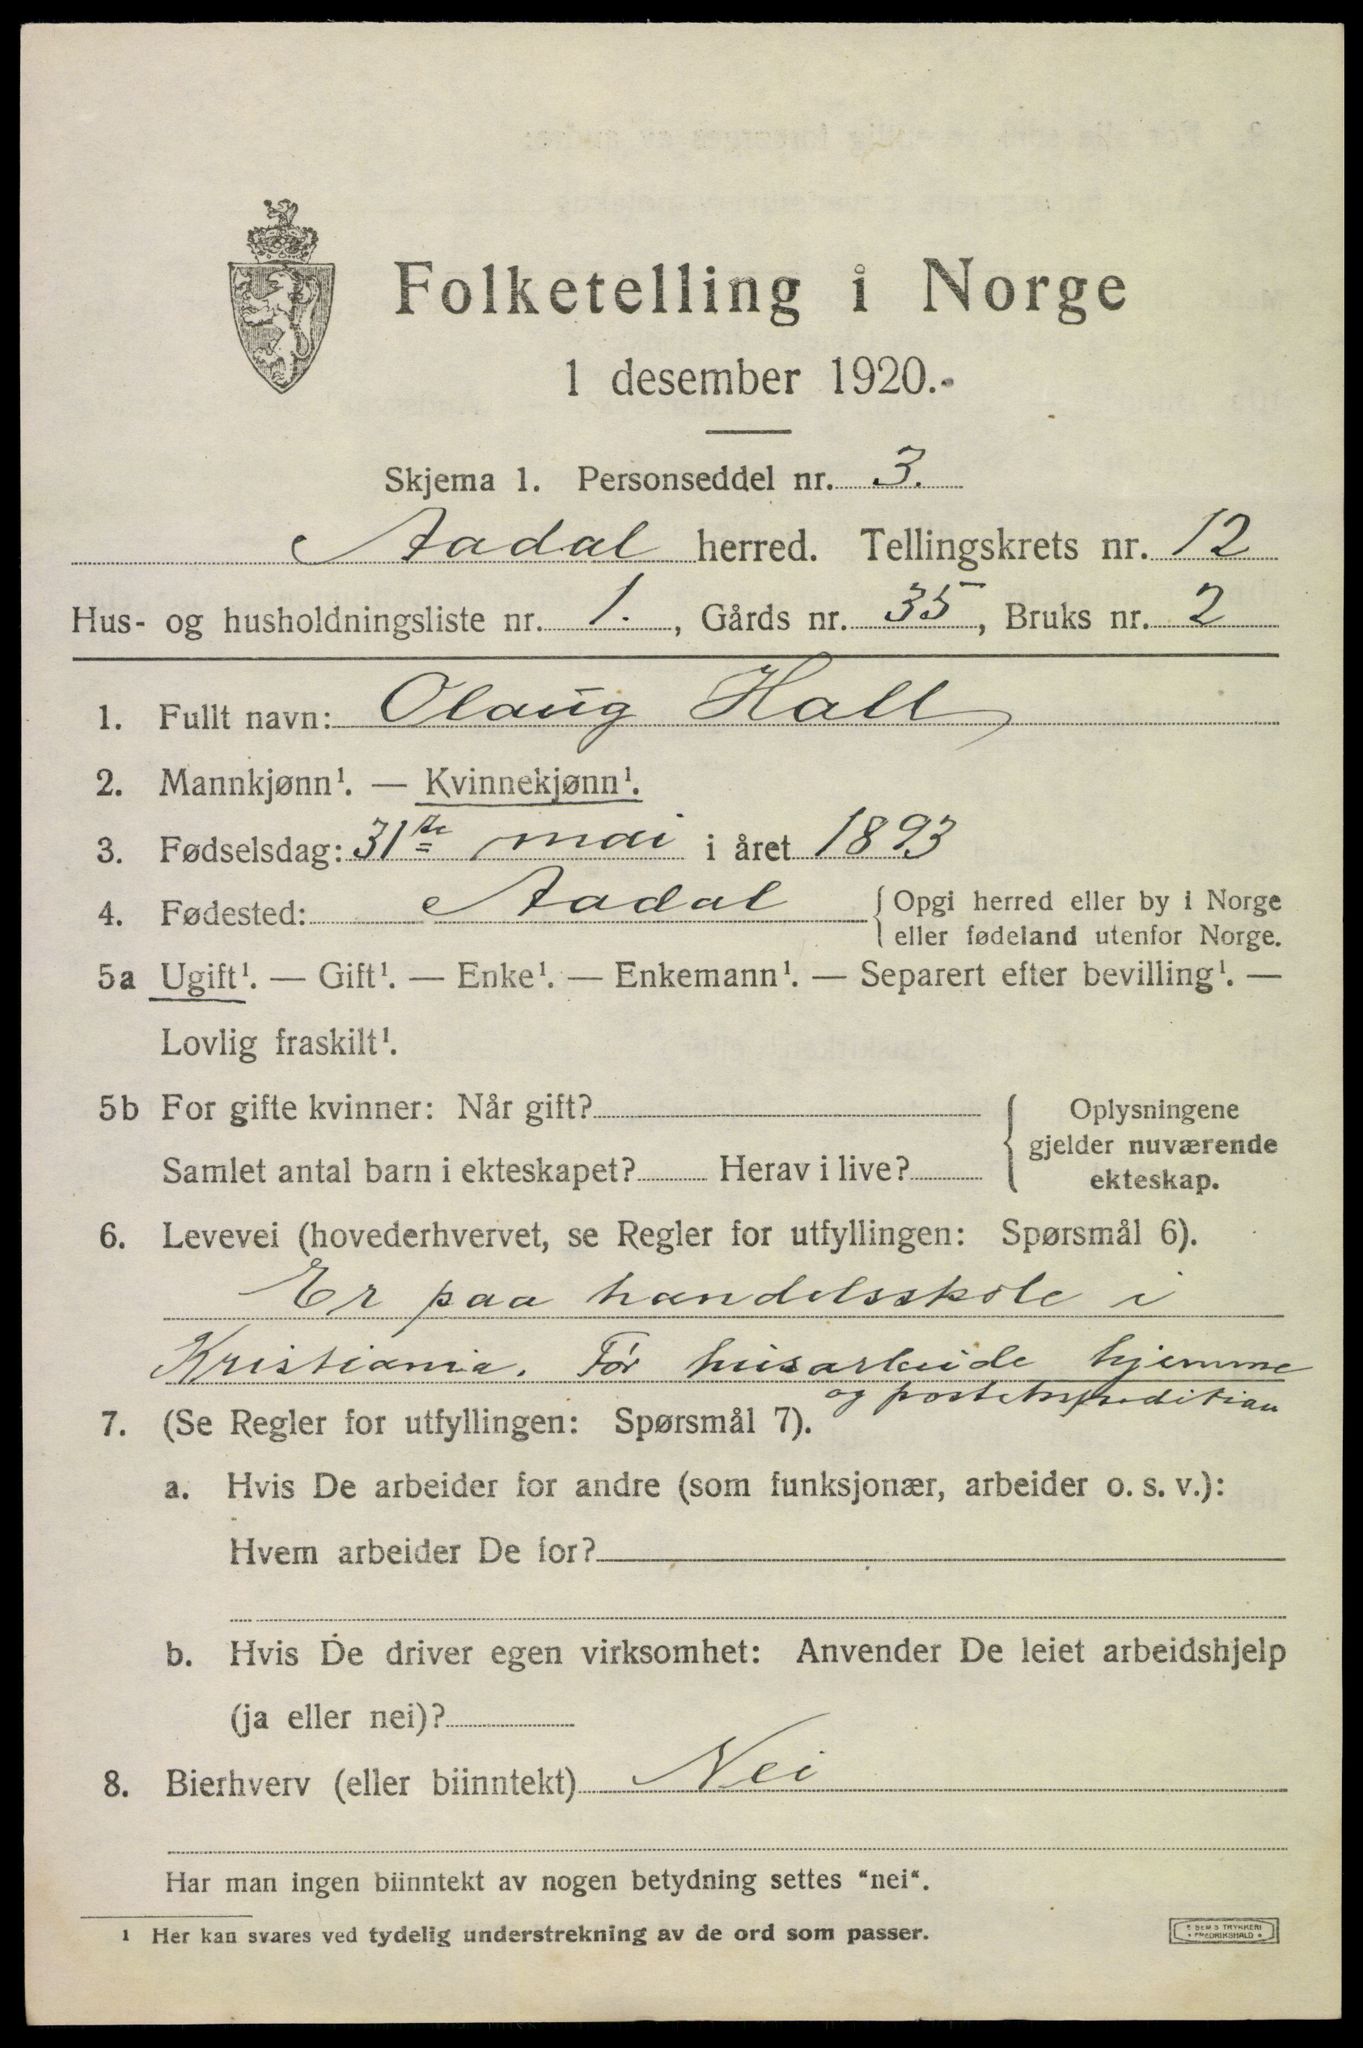 Folketelling i Norge
1 desember 1920.
Skjema 1. Personseddel nr. 3.
Aadal herred. Tellingskrets nr. 12
Hus- og husholdningsliste nr. 1., Gårds nr. 35, Bruks nr. 2
1. Fullt navn: Olaug Hall
2. Mannkjønn¹. — Kvinnekjønn¹.
3. Fødselsdag: 31te mai i året 1893
4. Fødested: Aadal { Opgi herred eller by i Norge
eller fødeland utenfor Norge.
5a Ugift¹. — Gift¹. — Enke¹. — Enkemann¹. — Separert efter bevilling¹. —
Lovlig fraskilt¹.
5b For gifte kvinner: Når gift?
Samlet antal barn i ekteskapet? Herav i live?
Oplysningene
gjelder nuværende
ekteskap.
6. Levevei (hovederhvervet, se Regler for utfyllingen: Spørsmål 6).
Er paa handelsskole i
Kristiania. Før husarbeide hjemme
og postekspedition
7. (Se Regler for utfyllingen: Spørsmål 7).
a. Hvis De arbeider for andre (som funksjonær, arbeider o. s. v.):
Hvem arbeider De for?
b. Hvis De driver egen virksomhet: Anvender De leiet arbeidshjelp
(ja eller nei)?
8. Bierhverv (eller biinntekt) Nei
Har man ingen biinntekt av nogen betydning settes "nei".
¹ Her kan svares ved tydelig understrekning av de ord som passer.
E SEM'S TRYKKERI
FREDRIKSHALD